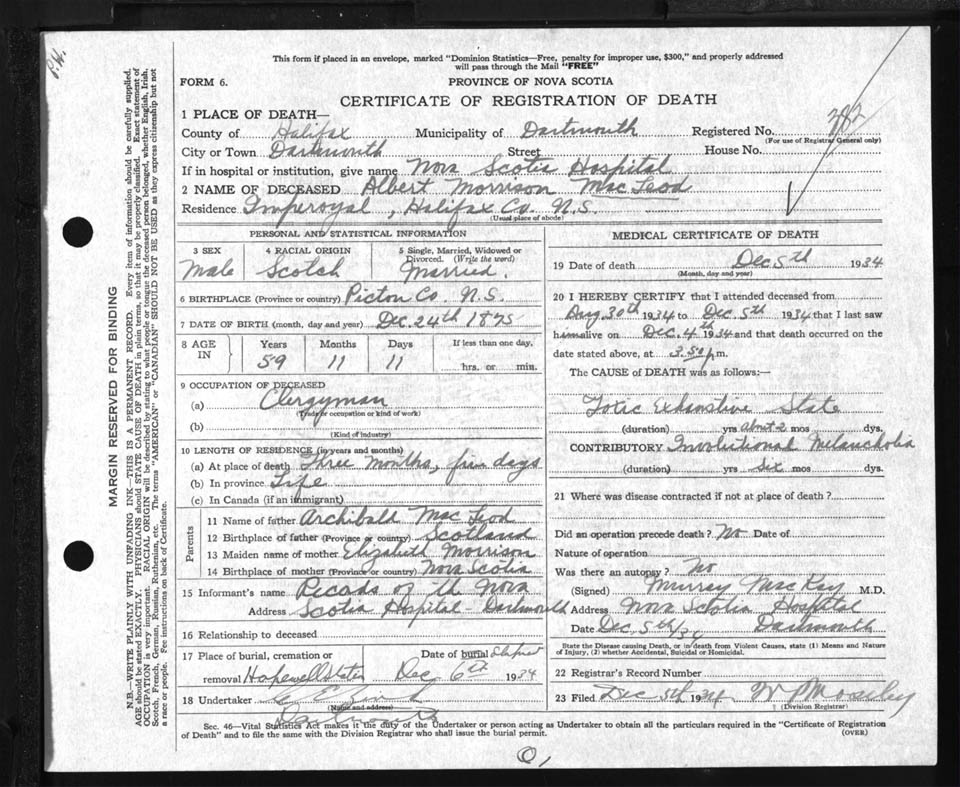 P.W.
This form if placed in an envelope, marked "Dominion Statistics—Free, penalty for improper use, $300," and properly addressed
will pass through the Mail "FREE"
FORM 6.
PROVINCE OF NOVA SCOTIA
CERTIFICATE OF REGISTRATION OF DEATH
1 PLACE OF DEATH—
County of Halifax Municipality of Dartmouth Registered No. 382
(For use of Registrar General only)
City or Town Dartmouth Street House No.
If in hospital or institution, give name Nova Scotia Hospital
2 NAME OF DECEASED Albert Morrison MacLeod
Residence Imperoyal, Halifax Co. N.S.
(Usual place of abode)
PERSONAL AND STATISTICAL INFORMATION
3 SEX 4 RACIAL ORIGIN 5 Single, Married, Widowed or
Divorced. (Write the word)
Male Scotch Married.
6 BIRTHPLACE (Province or country) Picton Co. N.S.
7 DATE OF BIRTH (month, day and year) Dec. 24th 1875
8 AGE IN Years Months Days If less than one day,
59 11 11 hrs. or min.
9 OCCUPATION OF DECEASED
(a) Clergyman
(Trade or occupation or kind of work)
(b)
(Kind of industry)
10 LENGTH OF RESIDENCE (in years and months)
(a) At place of death Three Months, five days
(b) In province Life
(c) In Canada (if an immigrant)
Parents
11 Name of father Archibald MacLeod
12 Birthplace of father (Province or country) Scotland
13 Maiden name of mother Elizabeth Morrison
14 Birthplace of mother (Province or country) Nova Scotia
15 Informant's name Recods of th Nova
Address Scotia Hospital - Dartmouth
16 Relationship to deceased
17 Place of burial, cremation or Date of burial
removal Hopewell Dec 6th 1934
18 Undertaker
(Name and address)
Dartmouth
MEDICAL CERTIFICATE OF DEATH
19 Date of death Dec 5th 1934
(Month, day and year)
20 I HEREBY CERTIFY that I attended deceased from
Aug. 30th 1934 to Dec. 5th 1934 that I last saw
him alive on Dec. 4th 1934 and that death occurred on the
date stated above, at 3.50 p.m.
The CAUSE of DEATH was as follows:—
Toxic Exhaustive State
(duration) yrs about 2 mos dys.
CONTRIBUTORY Involutional Melancholia
(duration) yrs six mos dys.
21 Where was disease contracted if not at place of death?
Did an operation precede death? No Date of
Nature of operation
Was there an autopsy? No
(Signed) Murray MacKay M.D.
Address Nova Scotia Hospital
Date Dec 5th/34 Dartmouth
State the Disease causing Death, or in death from Violent Causes, state (1) Means and Nature
of Injury, (2) whether Accidental, Suicidal or Homicidal.
22 Registrar's Record Number
23 Filed Dec 5th 1934
(Division Registrar)
Sec. 46—Vital Statistics Act makes it the duty of the Undertaker or person acting as Undertaker to obtain all the particulars required in the "Certificate of Registration
of Death" and to file the same with the Division Registrar who shall issue the burial permit.
(OVER)
MARGIN RESERVED FOR BINDING
N.B.—WRITE PLAINLY WITH UNFADING INK—THIS IS A PERMANENT RECORD. Every item of information should be carefully supplied.
AGE should be stated EXACTLY. PHYSICIANS should STATE CAUSE OF DEATH in plain terms, so that it may be properly classified. Exact statement of
OCCUPATION is very important. RACIAL ORIGIN will be described by stating to what people or tongue the deceased person belonged, whether English, Irish,
Scotch, French, German, Russian, Ruthenian, etc. The terms "AMERICAN" or "CANADIAN" SHOULD NOT BE USED as they express citizenship but not
a race or people. Fee instructions on back of Certificate.